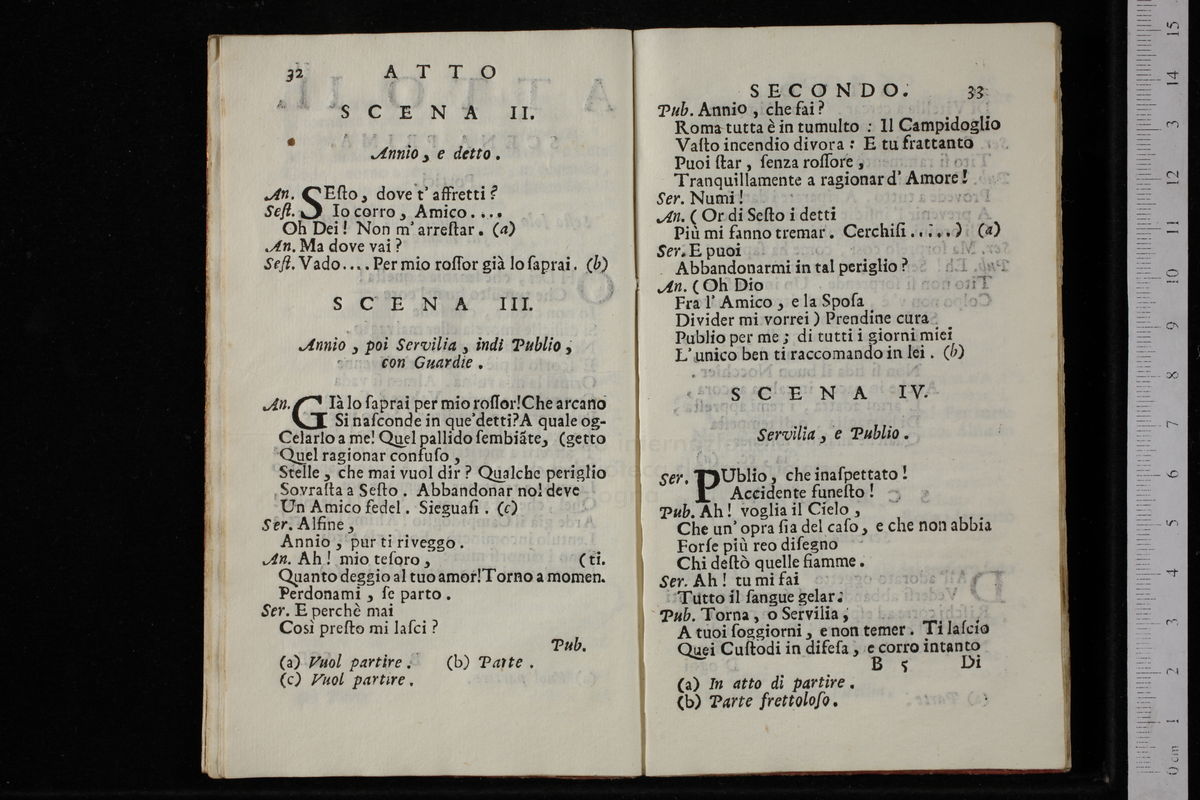 32 ATTO
SCENA II.
Annio, e detto.
An. SEſto, dove t' affretti?
Seſt. Io corro, Amico....
Oh Dei! Non m' arreſtar. (a)
An. Ma dove vai?
Seſt. Vado.... Per mio roſſor già lo ſaprai. (b)
SCENA III.
Annio, poi Servilia, indi Publio,
con Guardie.
An. GIà lo ſaprai per mio roſſor! Che arcano
Si naſconde in que' detti? A quale og-
Celarlo a me! Quel pallido ſembiãte, (getto
Quel ragionar confuſo,
Stelle, che mai vuol dir? Qualche periglio
Sovraſta a Seſto. Abbandonar nol deve
Un Amico fedel. Sieguaſi. (c)
Ser. Alfine,
Annio, pur ti riveggo.
An. Ah! mio teſoro, (ti.
Quanto deggio al tuo amor! Torno a momen.
Perdonami, ſe parto.
Ser. E perchè mai
Così preſto mi laſci?
Pub.
(a) Vuol partire. (b) Parte.
(c) Vuol partire.
SECONDO. 33
Pub. Annio, che fai?
Roma tutta è in tumulto: Il Campidoglio
Vaſto incendio divora: E tu frattanto
Puoi ſtar, ſenza roſſore,
Tranquillamente a ragionar d' Amore!
Ser. Numi!
An. (Or di Seſto i detti
Più mi fanno tremar. Cerchiſi.....) (a)
Ser. E puoi
Abbandonarmi in tal periglio?
An. (Oh Dio
Fra l' Amico, e la Spoſa
Divider mi vorrei) Prendine cura
Publio per me; di tutti i giorni miei
L' unico ben ti raccomando in lei. (b)
SCENA IV.
Servilia, e Publio.
Ser. PUblio, che inaſpettato!
Accidente funeſto!
Pub. Ah! voglia il Cielo,
Che un' opra ſia del caſo, e che non abbia
Forſe più reo diſegno
Chi deſtò quelle fiamme.
Ser. Ah! tu mi fai
Tutto il ſangue gelar.
Pub. Torna, o Servilia,
A tuoi ſoggiorni, e non temer. Ti laſcio
Quei Cuſtodi in difeſa, e corro intanto
B 5 Di
(a) In atto di partire.
(b) Parte frettoloſo.